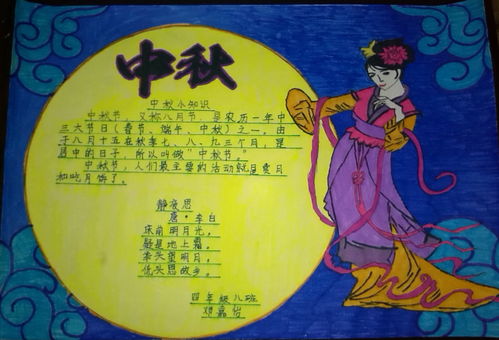 中秋
中秋小知识
中秋节，又称八月节，是农历一年中
三大节日（春节、端午、中秋）之一。由
于八月十五在秋季七、八、九三个月，是
居中的日子，所以叫做“中秋节”。
中秋节，人们最主要的活动就是赏月
和吃月饼了。
静夜思
唐·李白
床前明月光，
疑是地上霜。
举头望明月，
低头思故乡。
四年级八班
邓嘉怡